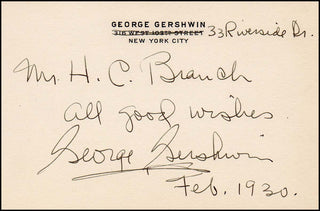 GEORGE GERSHWIN
316 WEST 103RD STREET 33 Riverside Dr.
NEW YORK CITY
Mr. H. C. Branch
all good wishes
George Gershwin
Feb. 1930.